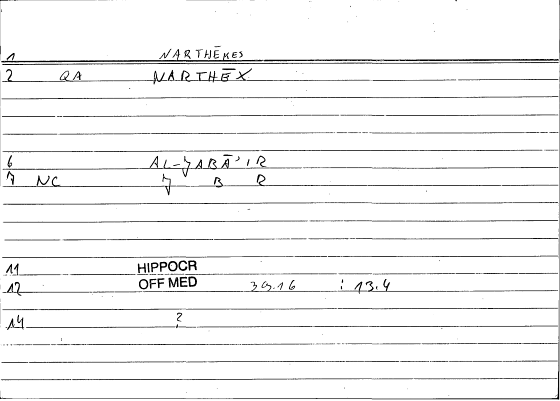 1 NARTHĒKES
2 QA NARTHĒX
6 AL-ʒABĀʾIR
7 NC ʒ B R
11 HIPPOCR
12 OFF MED 39.16 : 13.4
14 ?